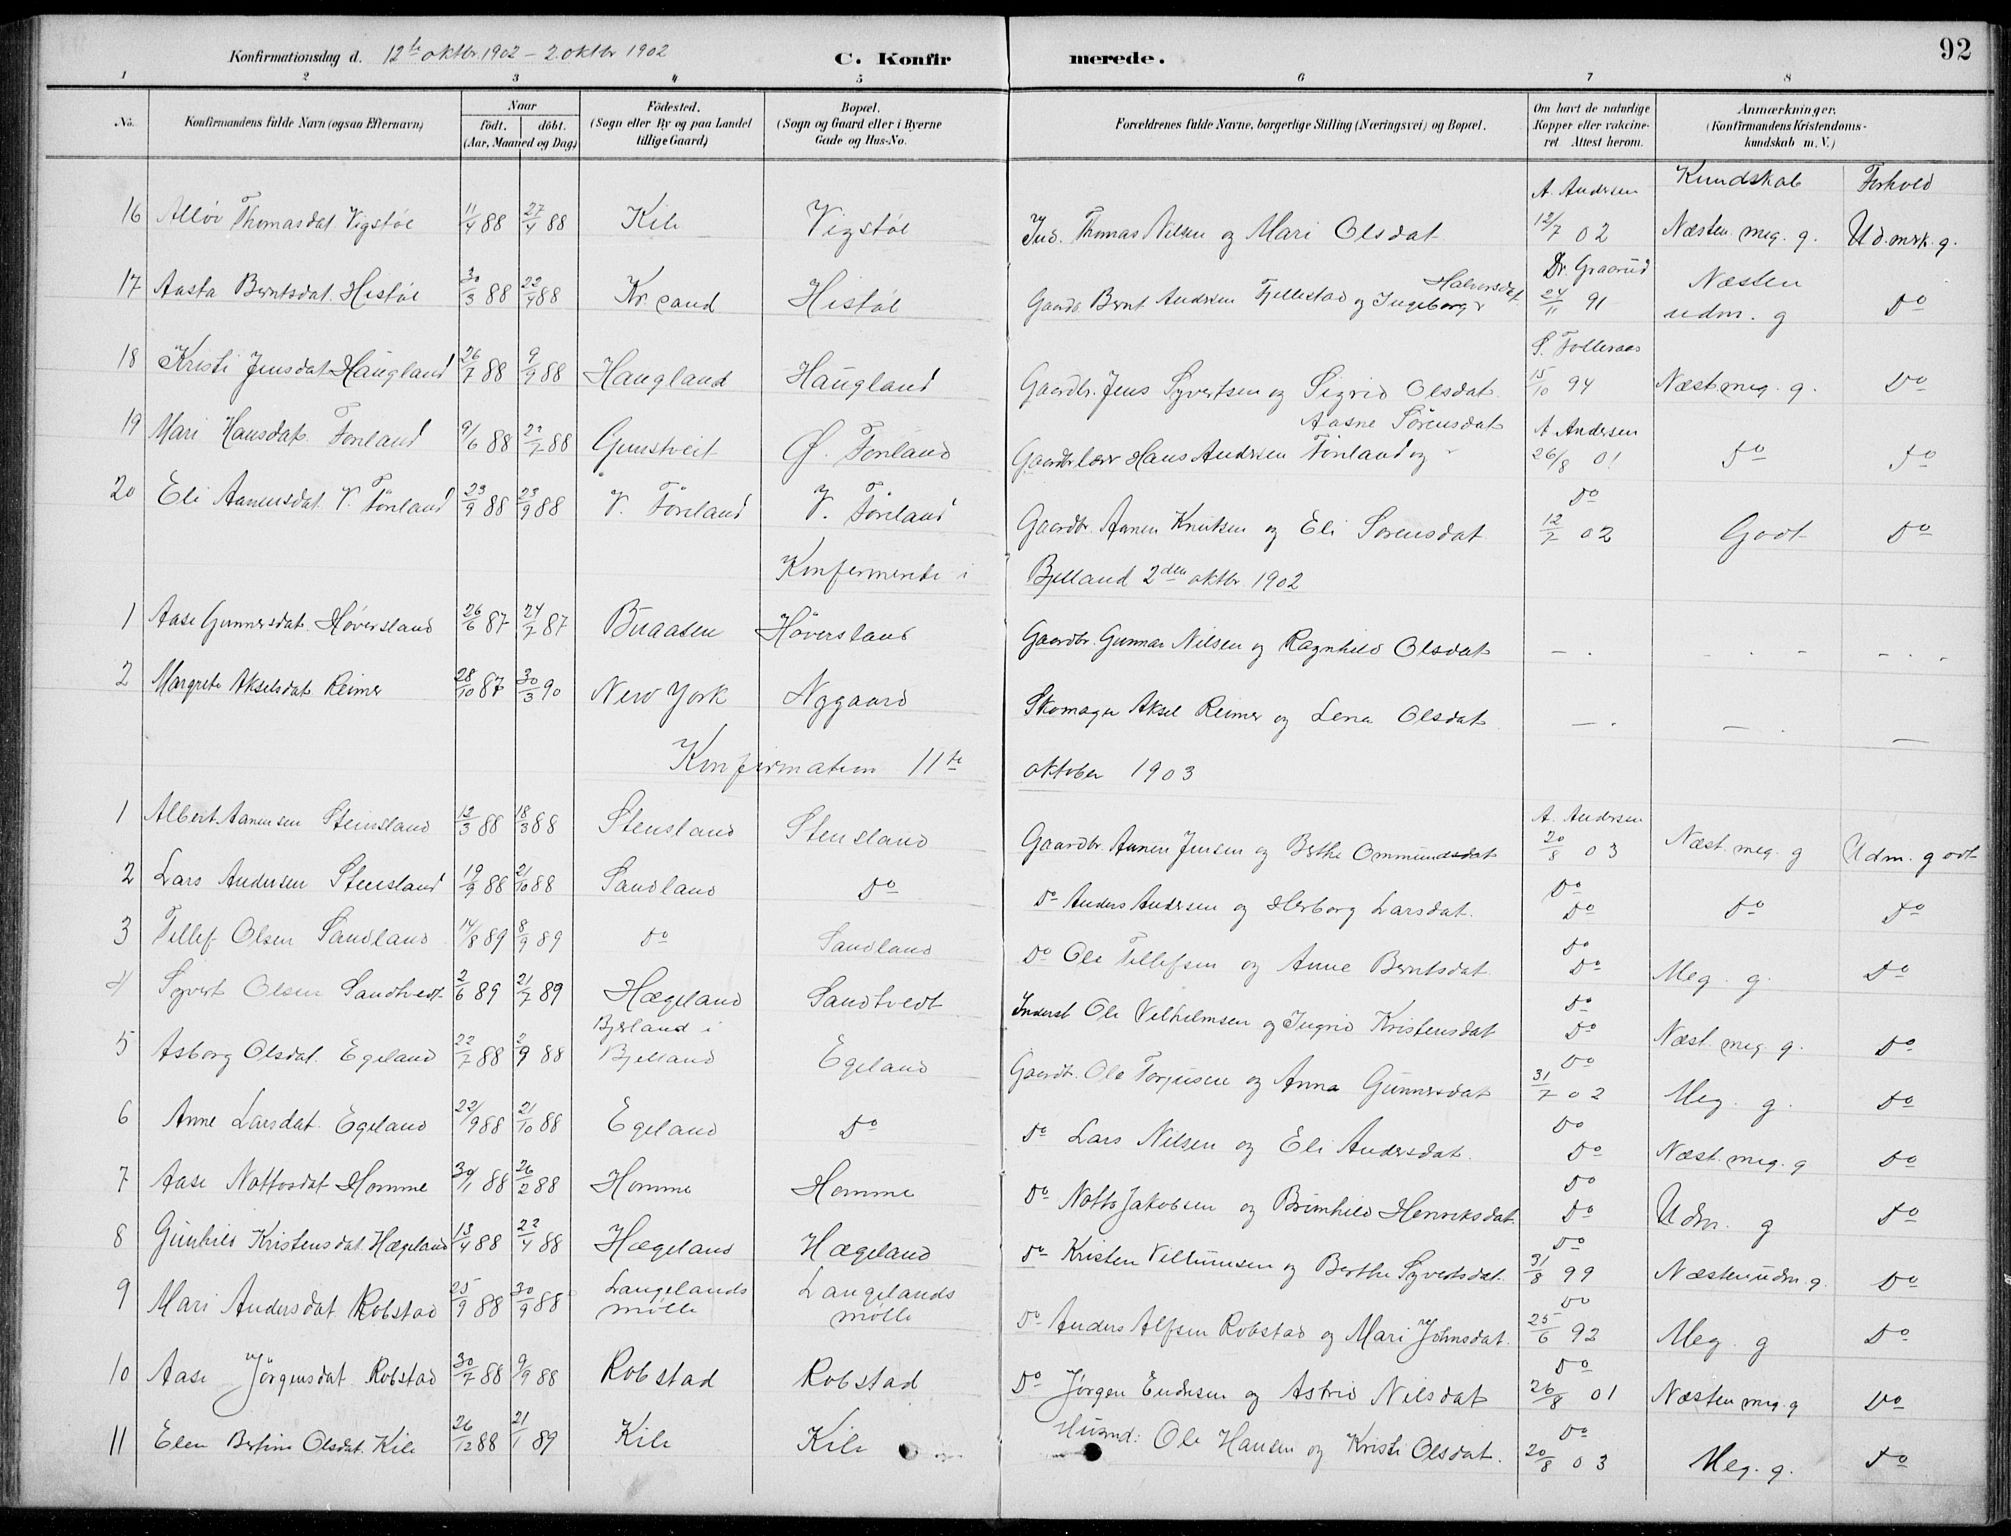 92
Konfirmationsdag d. 12te oktbr. 1902 – 2. oktbr 1902 C. Konfir merede.
1 2 3 4 5 6 7 8
No. Konfirmandens fulde Navn (ogsaa Efternavn) Naar Födt. döbt. (Aar, Maaned og Dag) Födested. (Sogn eller By og paa Landet tillige Gaard) Bopæl. (Sogn og Gaard eller i Byerne Gade og Hus-No. Forældrenes fulde Navne, borgerlige Stilling (Næringsvei) og Bopæl. Om havt de naturlige Kopper eller vakcineret Attest herom. Anmærkninger. (Konfirmandens Kristendomskundskab m. V.)
A. Andersen Kundskab Forhold
16 Alløv Thomasdat. Vigstøl 11/4 88 27/4 88 Kile Vigstøl Ind. Thomas Nilsen og Mari Olsdat 12/7 02 Næsten meg. g. Udmrk. g.
17 Aasta Berntsdat. Histøl 30/3 88 22/4 88 Kr.sand Histøl Gaardr. Bernt Andersen Fjellestad og Ingeborg Halvorsdat. Dr. Graarud 24/11 91 Næsten udm. g Do
18 Kristi Jensdat. Haugland 26/7 88 9/9 88 Haugland Haugland Gaardbr. Jens Syvertsen og Sigrid Olsdat. S. Folleraas 15/10 94 Næst. meg. g. Do
19 Mari Hansdat. Fonland 9/6 88 22/7 88 Gunstveit Ø. Fønland Gaardbr. lærer Hans Andersen Fønland og Aasne Sörensdat A. Andersen 26/8 01 Do Do
20 Eli Aanensdat. V. Fønland 23/9 88 23/9 88 V. Fønland V. Fønland Gaardbr. Aanen Knutsen og Eli Sorensdat Do 12/7 02 Godt Do
Konfermerede i Bjelland 2den oktbr. 1902
1 Aase Gunnersdat. Høversland 26/6 87 24/7 87 Buaasen Höversland Gaardbr. Gunnar Nilsen og Ragnhild Olsdat – . – . – – . .
2 Margrete Akselsdat. Reimer 28/10 87 30/3 90 New York Nygaard Skomager Aksel Reimer og Lena Olsdat – . – . –
Konfirmation 11te oktober 1903
1 Albert Aanensen Stensland 12/3 88 18/3 88 Stensland Stensland Gaardbr. Aanen Jensen og Berthe Ommundsdat A. Andersen 20/8 03 Næst. meg. g Udm. godt
2 Lars Andersen Stensland 19/9 88 21/10 88 Sandland Do Do Anders Andersen og Herborg Larsdat. Do Do Do Do
3 Tellef Olsen Sandland 14/8 89 8/9 89 Do Sandland Do Ole Tellefsen og Anne Berntsdat. Do Do Meg. g. Do
4 Syvert Olsen Sandtvedt 2/6 89 21/7 89 Hægeland Sandtvedt Inderst Ole Vilhelmsen og Ingrid Kristensdat Do Do Næst. meg. g. Do
5 Asborg Olsdat. Egeland 22/7 88 2/9 88 Bjelland i Bjelland Egeland Gaardb. Ole Torjusen og Anna Gunnersdat Do 31/7 02 Meg. g. Do
6 Anne Larsdat. Egeland 22/9 88 21/10 88 Egeland Do Do Lars Nilsen og Eli Andersdat. Do Do Næst. meg. g Do
7 Aase Nottosdat. Homme 30/1 88 26/2 88 Homme Homme Do Notto Jakobsen og Brünhild Henriksdat. Do Do Udm. g Do
8 Gunhild Kristensdat. Hægeland 13/4 88 22/4 88 Hægeland Hægeland Do Kristen Villumsen og Berthe Syvertsdat. Do 31/8 99 Næsten udm. g. Do
9 Mari Andersdat. Robstad 25/9 88 30/9 88 Langelands mølle Langelands mølle Do Anders Alfsen Robstad og Mari Johnsdat. Do 25/6 92 Meg. g Do
10 Aase Jörgensdat. Robstad 30/7 88 9/9 88 Robstad Robstad Do Jörgen Endresen og Astrid Nilsdat Do 26/8 01 Næsten meg. g Do
11 Elen Bertine Olsdat. Kile 26/12 88 21/1 89 Kile Kile Husmd: Ole Hansen og Kristi Olsdat. Do 20/8 03 Meg. g. Do